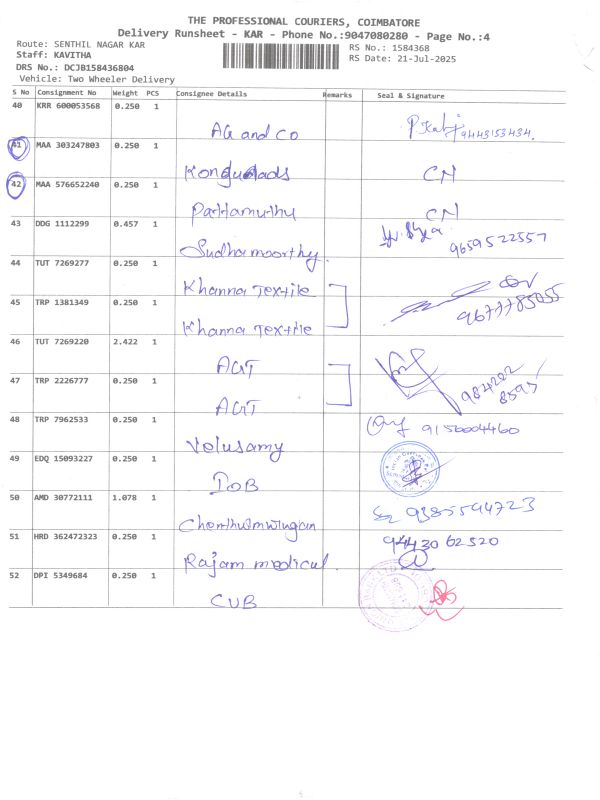 THE PROFESSIONAL COURIERS, COIMBATORE
Delivery Runsheet - KAR - Phone No.:9047080280 - Page No.:4
Route: SENTHIL NAGAR KAR
RS No.: 1584368
Staff: KAVITHA
RS Date: 21-Jul-2025
DRS No.: DCJB158436804
Vehicle: Two Wheeler Delivery
S No Consignment No Weight PCS Consignee Details Remarks Seal & Signature
40 KRR 600053568 0.250 1
AG and CO 9443153434.
41 MAA 303247803 0.250 1
CN
42 MAA 576652240 0.250 1
Pattamuthu CN
43 DDG 1112299 0.457 1
Sudhamoorthy. 9659522557
44 TUT 7269277 0.250 1
Khanna Textile
45 TRP 1381349 0.250 1
Khanna Textile
46 TUT 7269220 2.422 1
AGT
47 TRP 2226777 0.250 1
AGT
48 TRP 7962533 0.250 1
Velusamy 9156004460
49 EDQ 15093227 0.250 1
IOB
50 AMD 30772111 1.078 1
9385594723
51 HRD 362472323 0.250 1
Rajam medical 9443062520
52 DPI 5349684 0.250 1
CUB